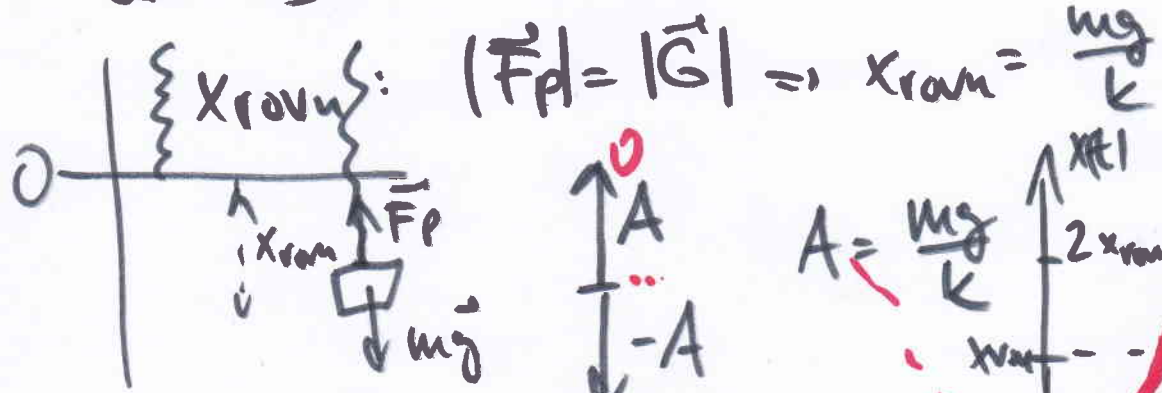 x_rovn: |F⃗p| = |G⃗| => x_rovn = mg/k
O
F⃗p
x_rovn
mg⃗
0
A
-A
A = mg/k
x(t)
2x_rovn
x_rovn